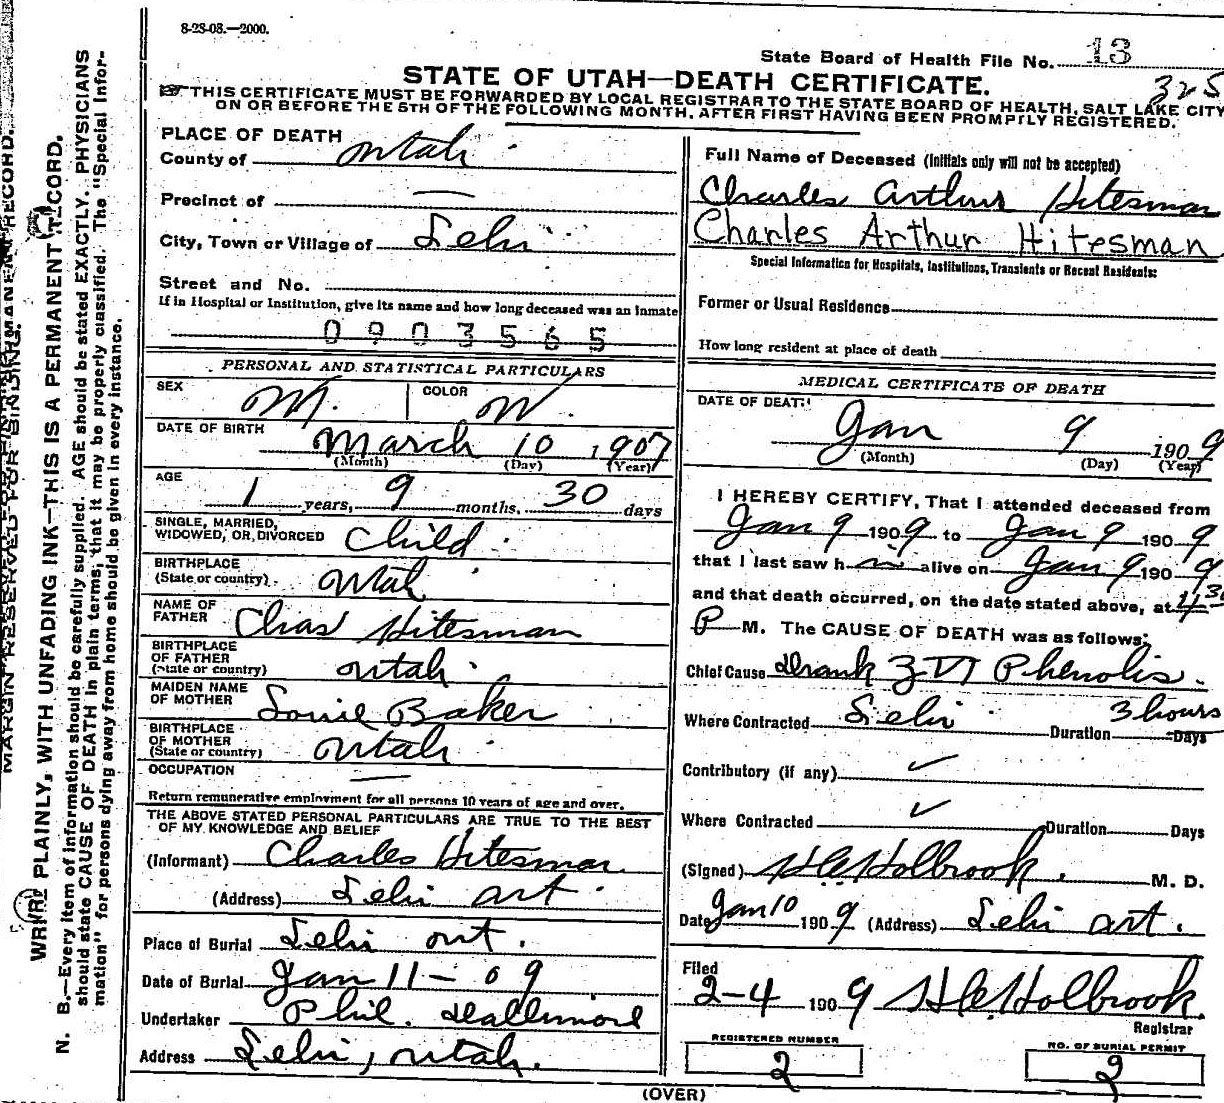 8-28-08.—2000.
State Board of Health File No. 13
325
STATE OF UTAH—DEATH CERTIFICATE.
THIS CERTIFICATE MUST BE FORWARDED BY LOCAL REGISTRAR TO THE STATE BOARD OF HEALTH, SALT LAKE CITY
ON OR BEFORE THE 5TH OF THE FOLLOWING MONTH, AFTER FIRST HAVING BEEN PROMPTLY REGISTERED.
PLACE OF DEATH
County of Utah
Precinct of —
City, Town or Village of Lehi
Street and No.
If in Hospital or Institution, give its name and how long deceased was an inmate
0903565
PERSONAL AND STATISTICAL PARTICULARS
SEX M. COLOR W.
DATE OF BIRTH March 10 1907
(Month) (Day) (Year)
AGE 1 years, 9 months, 30 days
SINGLE, MARRIED,
WIDOWED, OR, DIVORCED Child
BIRTHPLACE
(State or country) Utah
NAME OF
FATHER Chas Hitesman
BIRTHPLACE
OF FATHER
(State or country) Utah
MAIDEN NAME
OF MOTHER Baker
BIRTHPLACE
OF MOTHER
(State or country) Utah
OCCUPATION —
Return remunerative employment for all persons 10 years of age and over.
THE ABOVE STATED PERSONAL PARTICULARS ARE TRUE TO THE BEST
OF MY KNOWLEDGE AND BELIEF
(Informant) Charles Hitesman
(Address) Lehi Ut
Place of Burial Lehi Ut.
Date of Burial Jan 11-09
Undertaker Phil.
Address Lehi, Utah.
Full Name of Deceased (Initials only will not be accepted)
Charles Arthur Hitesman
Charles Arthur Hitesman
Special Information for Hospitals, Institutions, Transients or Recent Residents:
Former or Usual Residence
How long resident at place of death
MEDICAL CERTIFICATE OF DEATH
DATE OF DEATH
Jan 9 1909
(Month) (Day) (Year)
I HEREBY CERTIFY, That I attended deceased from
Jan 9 1909 to Jan 9 1909
that I last saw him alive on Jan 9 1909
and that death occurred, on the date stated above, at
P M. The CAUSE OF DEATH was as follows:
Chief Cause Drank Phenolis.
Where Contracted Lehi Duration 3 hours Days
Contributory (if any)
Where Contracted Duration Days
(Signed) Holbrook. M. D.
Date Jan 10 1909 (Address) Lehi Ut.
Filed
2-4 1909 Holbrook.
Registrar
REGISTERED NUMBER
2
NO. OF BURIAL PERMIT
2
(OVER)
MARGIN RESERVED FOR BINDING.
WRITE PLAINLY, WITH UNFADING INK—THIS IS A PERMANENT RECORD.
N. B.—Every item of information should be carefully supplied. AGE should be stated EXACTLY. PHYSICIANS
should state CAUSE OF DEATH in plain terms, that it may be properly classified. The "Special Infor-
mation" for persons dying away from home should be given in every instance.